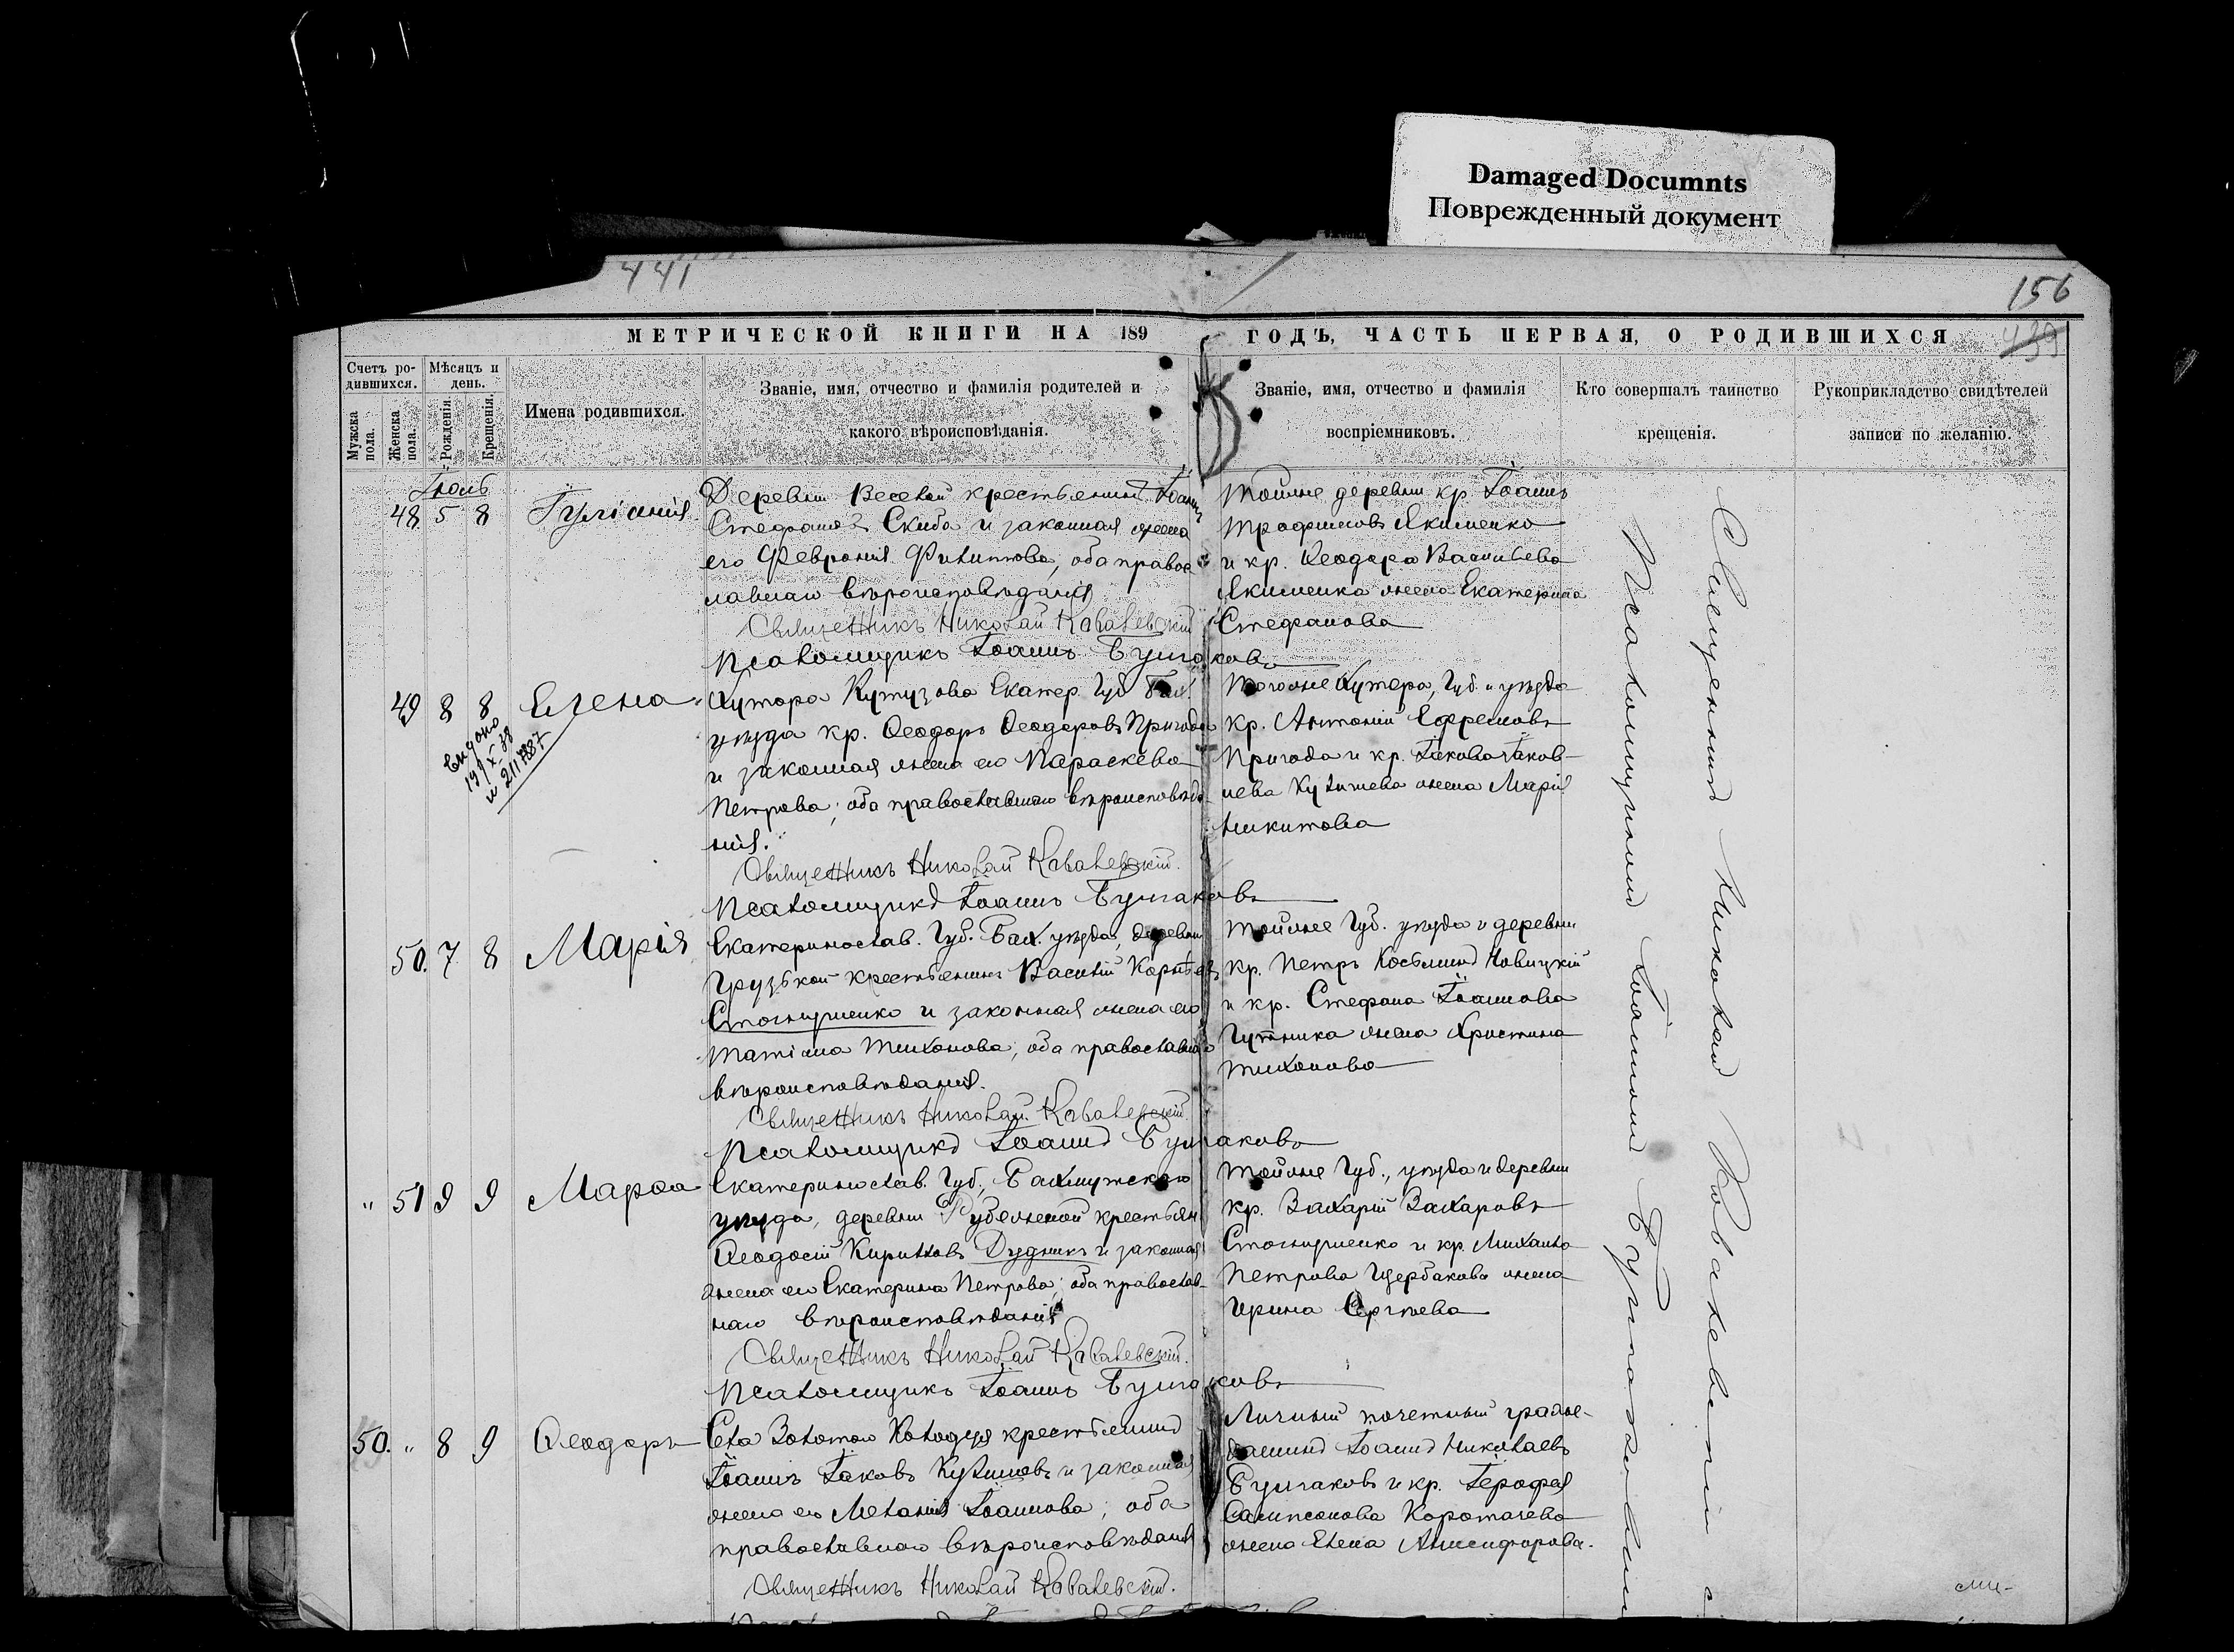 Damaged Documnts
Поврежденный документ
441
156
МЕТРИЧЕСКОЙ КНИГИ НА 189
ГОДЪ, ЧАСТЬ ПЕРВАЯ, О РОДИВШИХСЯ
439
Счетъ ро-
дившихся.
Мѣсяцъ и
день.
Мужска
пола.
Женска
пола.
Рожденія.
Крещенія.
Имена родившихся.
Званіе, имя, отчество и фамилія родителей и
какого вѣроисповѣданія.
Званіе, имя, отчество и фамилія
воспріемниковъ.
Кто совершалъ таинство
крещенія.
Рукоприкладство свидѣтелей
записи по желанію.
Іюль
48 5 8
Іуліанія
Деревни Веселой крестьянинъ Іоаннъ
Стефановъ Скиба и законная жена
его Февронія Филиппова, оба правос
лавнаго вѣроисповѣданія
Священникъ Николай Ковалевскій
Псаломщикъ Іоаннъ Булгаковъ
Тойже деревни кр. Іоаннъ
Трофимовъ Якименко
и кр. Ѳеодора Васильева
Якименка жена Екатерина
Стефанова
49 8 8 Елена
Выдано
Хутора Кутузова Екатер. Губ Бах
уѣзда кр. Ѳеодоръ Ѳеодоровъ Пригода
и законная жена его Параскева
Петрова; оба православнаго вѣроисповѣда
нія.
Священникъ Николай Ковалевскій.
Псаломщикъ Іоаннъ Булгаковъ
Тогоже Хутора, Губ. и уѣзда
кр. Антоній Ефремовъ
Пригода и кр. Іакова Іаков-
лева жена Марія
Никитова
50. 7 8 Марія
Екатеринослав. Губ. Бах. уѣзда, деревни
Грузской крестьянинъ Василій
Стогнушенко и законная жена его
Татіана Тихонова; оба православнаго
вѣроисповѣданія.
Священникъ Николай Ковалевскій
Псаломщикъ Іоаннъ Булгаковъ
Тойже Губ. уѣзда и деревни
кр. Петръ Косьминъ Новицкій
и кр. Стефана Іоаннова
Гутника жена Христина
Тихонова
" 51 9 9 Марѳа
Екатеринослав. Губ., Бахмутскаго
уѣзда, деревни крестьян
Ѳеодосій Кирилловъ Дудникъ и законная
жена его Екатерина Петрова; оба православ-
наго вѣроисповѣданія
Священникъ Николай Ковалевскій.
Псаломщикъ Іоаннъ Булгаковъ
Тойже Губ., уѣзда и деревни
кр. Захарій Захаровъ
Стогнушенко и кр. Михаила
Петрова Щербакова жена
Ирина Сергѣева
50. " 8 9 Ѳеодоръ
Села Золотого Колодезя крестьянинъ
Іоаннъ Іаковъ и законная
жена его Меланія Іоаннова; оба
православнаго вѣроисповѣданія
Священникъ Николай Ковалевскій.
Личный почетный граж-
данинъ Іоаннъ Николаевъ
Булгаковъ и кр. Іерофея
Сампсонова Коротаева
жена Елена Анисифорова.
Священникъ Николай Ковалевскій с
Псаломщикомъ Іоанномъ Булгаковым